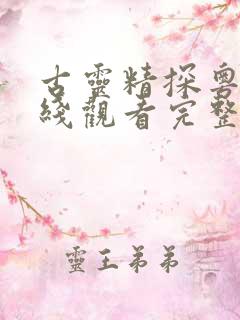 古靈精探粵
綫觀看完整
靈王弟弟